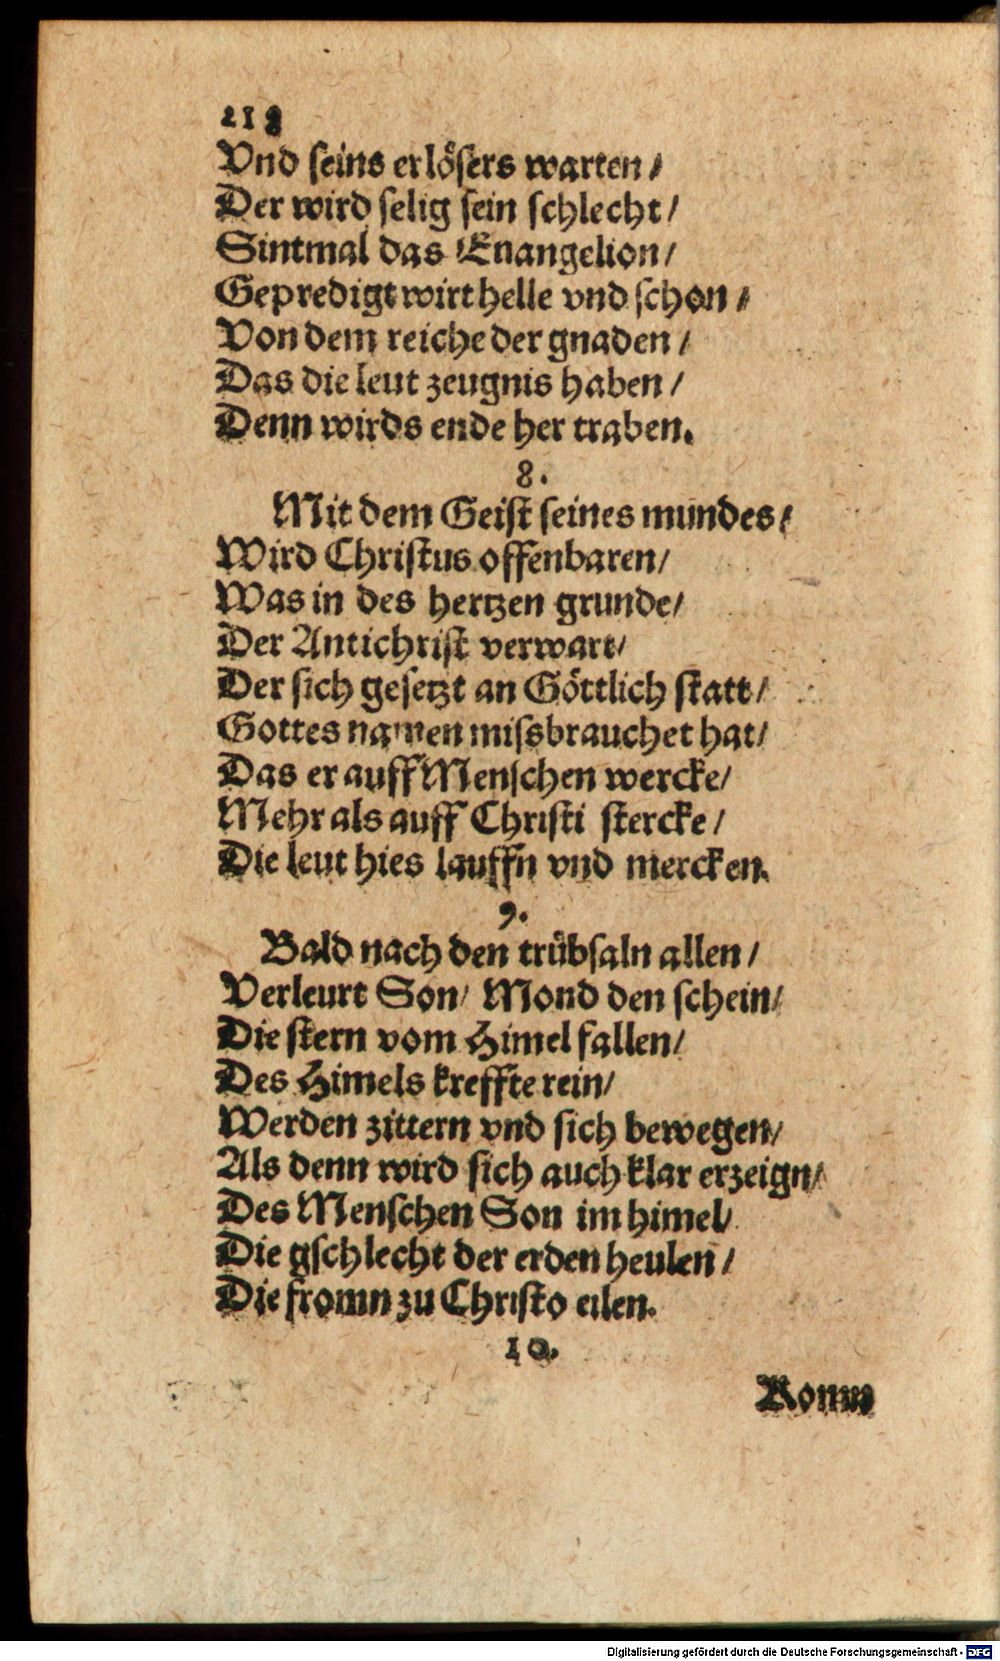 218
Vnd ſeins erlöſers warten /
Der wird ſelig ſein ſchlecht /
Sintmal das Euangelion /
Gepredigt wirt helle vnd ſchon /
Von dem reiche der gnaden /
Das die leut zeugnis haben /
Denn wirds ende her traben.
8.
Mit dem Geiſt ſeines mundes /
Wird Chriſtus offenbaren /
Was in des hertzen grunde /
Der Antichriſt verwart /
Der ſich geſetzt an Göttlich ſtatt /
Gottes namen miſsbrauchet hat /
Das er auff Menſchen wercke /
Mehr als auff Chriſti ſtercke /
Die leut hies lauffn vnd mercken.
9.
Bald nach den trübſaln allen /
Verleurt Son / Mond den ſchein /
Die ſtern vom Himel fallen /
Des Himels kreffte rein /
Werden zittern vnd ſich bewegen /
Als denn wird ſich auch klar erzeign /
Des Menſchen Son im himel /
Die gſchlecht der erden heulen /
Die fromn zu Chriſto eilen.
10.
Digitalisierung gefördert durch die Deutsche Forschungsgemeinschaft - DFG